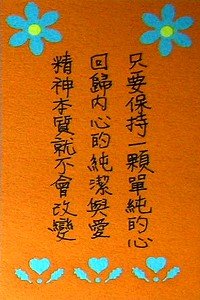 只要保持一顆單純的心
回歸内心的純潔與愛
精神本質就不會改變